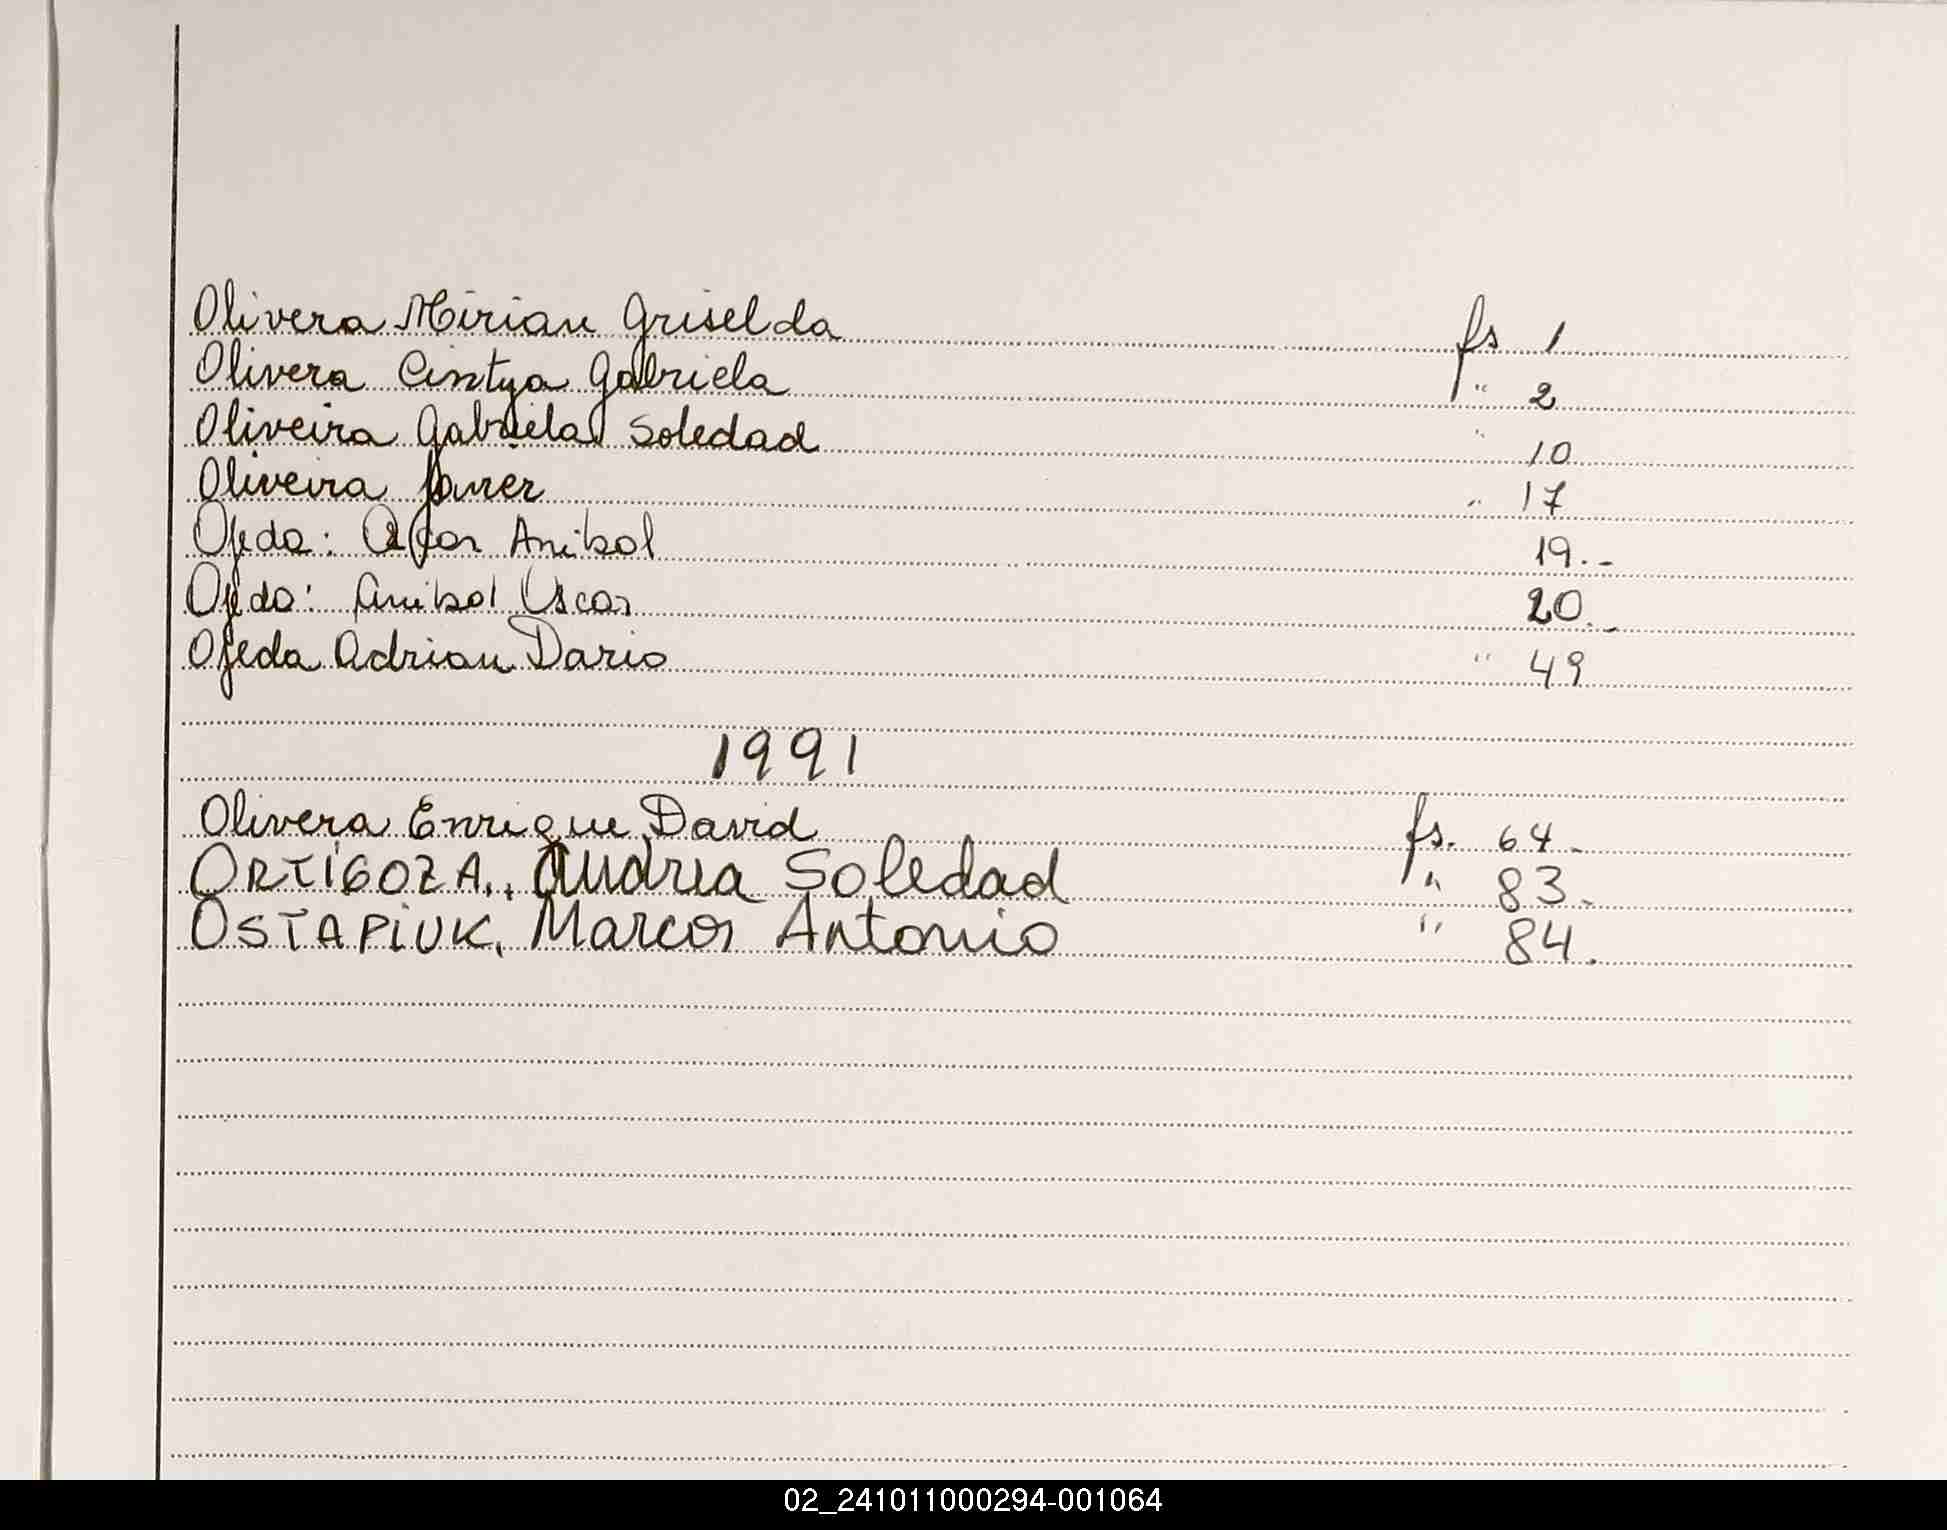 Olivera Mirian Griselda fs 1
Olivera Cintya Gabriela " 2
Oliveira Gabriela Soledad " 10
Oliveira Javier " 17
Ojeda: Anibal 19.-
Ojeda: Anibal Oscar 20.-
Ojeda Adrian Dario " 49
1991
Olivera Enrique David fs. 64.
ORTIGOZA, Andrea Soledad " 83.
OSTAPIUK, Marcos Antonio " 84.
02_241011000294-001064